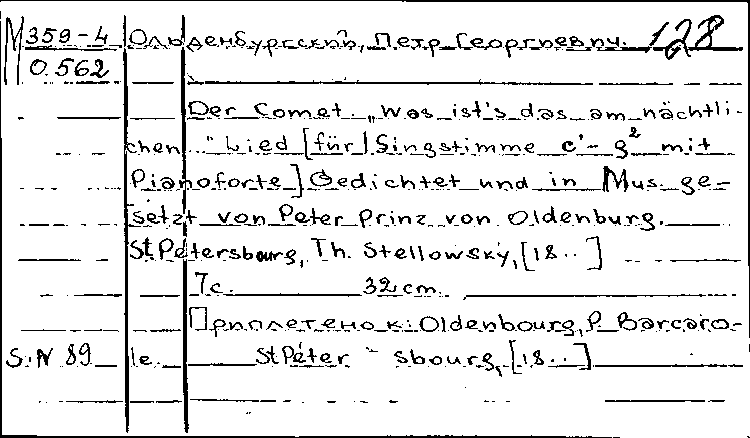 М 359-4 Ольденбургский, Петр Георгиевич. 128
0.562
Der Comet. „Was ist's das am nächtli-
chen..." Lied [für] Singstimme c'- g² mit
Pianoforte] Gedichtet und in Mus. ge-
setzt von Peter Prinz von Oldenburg.
St Petersbourg, Th. Stellowsky, [18..]
7c. 32 cm.
Приплетено к: Oldenbourg, P. Barcaro-
S.N 89 le. St Péter sbourg, [18..]